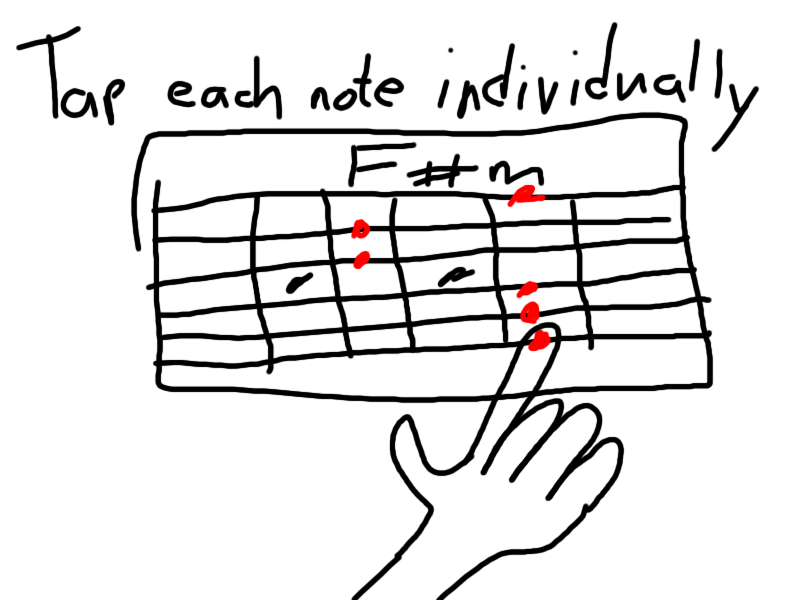 Tap each note individually
F#m